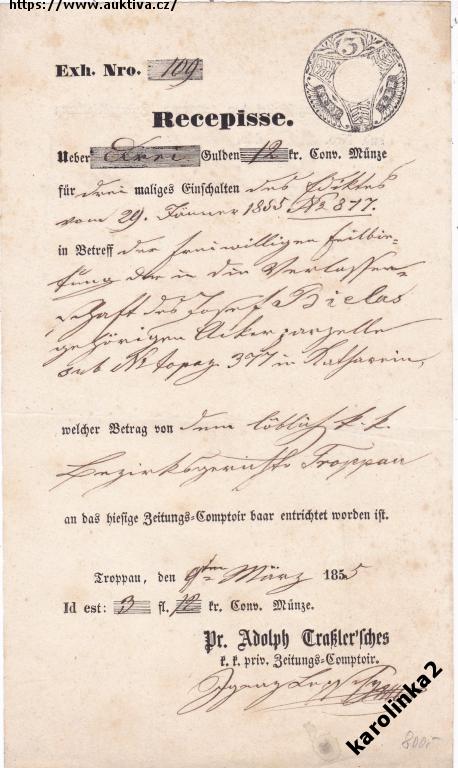 https://www.auktiva.cz/
3
Exh. Nro. 109
Recepisse.
Ueber Drei Gulden 12 kr. Conv. Münze
für drei maliges Einschalten des Ediktes
vom 29. Jänner 1855 No 877.
in Betreff der freiwilligen Feilbie-
thung der in die Verlassen-
schaft des Josef Bielas
gehörigen Ackerparzelle
sub No topog. 377 in Katharein,
welcher Betrag von dem löblich k. k.
Bezirksgerichte Troppau
an das hiesige Zeitungs-Comptoir baar entrichtet worden ist.
Troppau, den 9ten März 1855
Id est: 3 fl. 12 kr. Conv. Münze.
Pr. Adolph Traßler'sches
k. k. priv. Zeitungs-Comptoir.
Ignaz
karolinka2
800,-